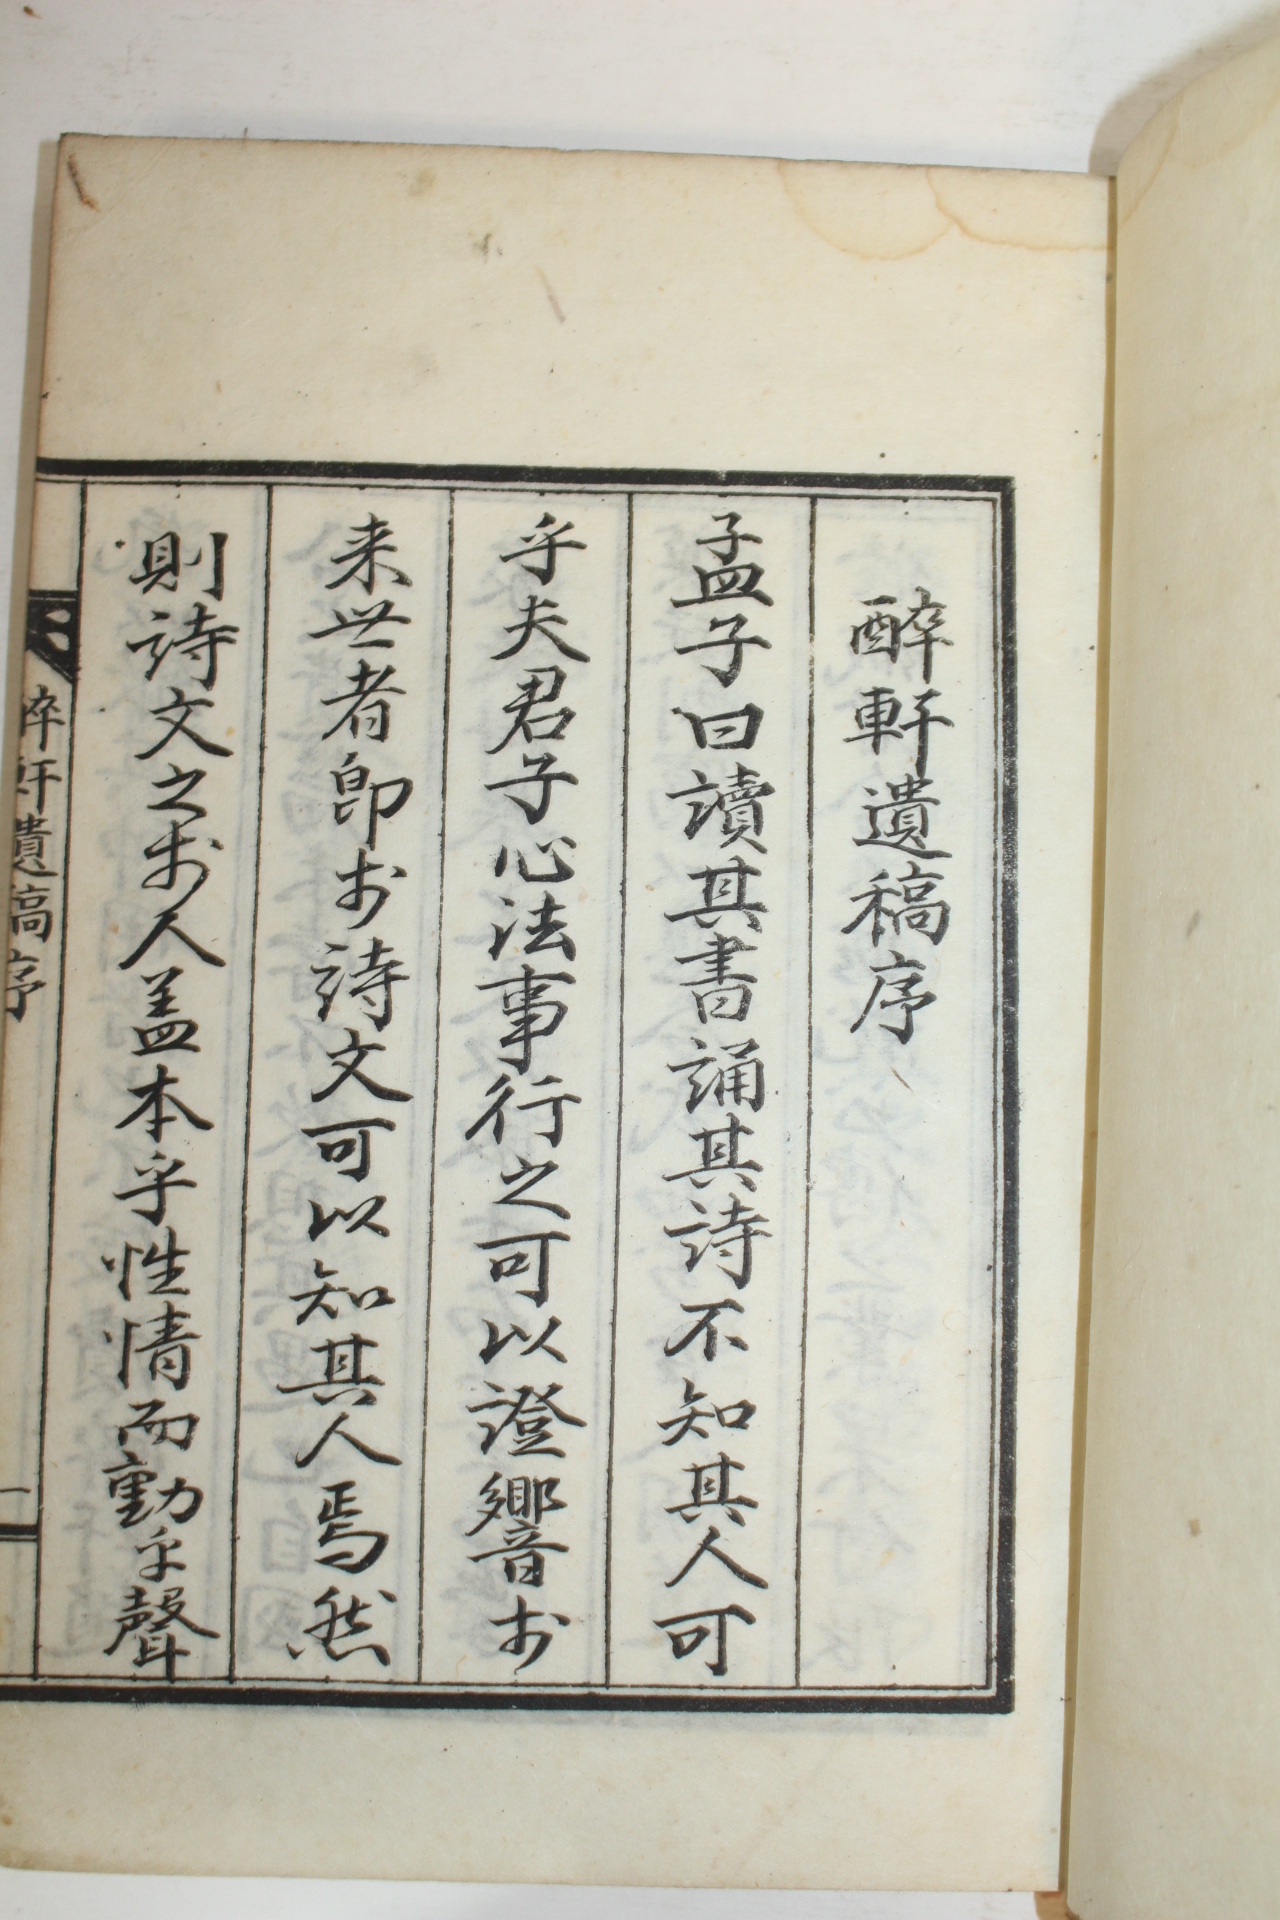 醉軒遺稿序
孟子曰讀其書誦其詩不知其人可
乎夫君子心法事行之可以證響於
来世者卽於詩文可以知其人焉然
則詩文之於人盖本乎性情而動乎聲
醉軒遺稿序
一